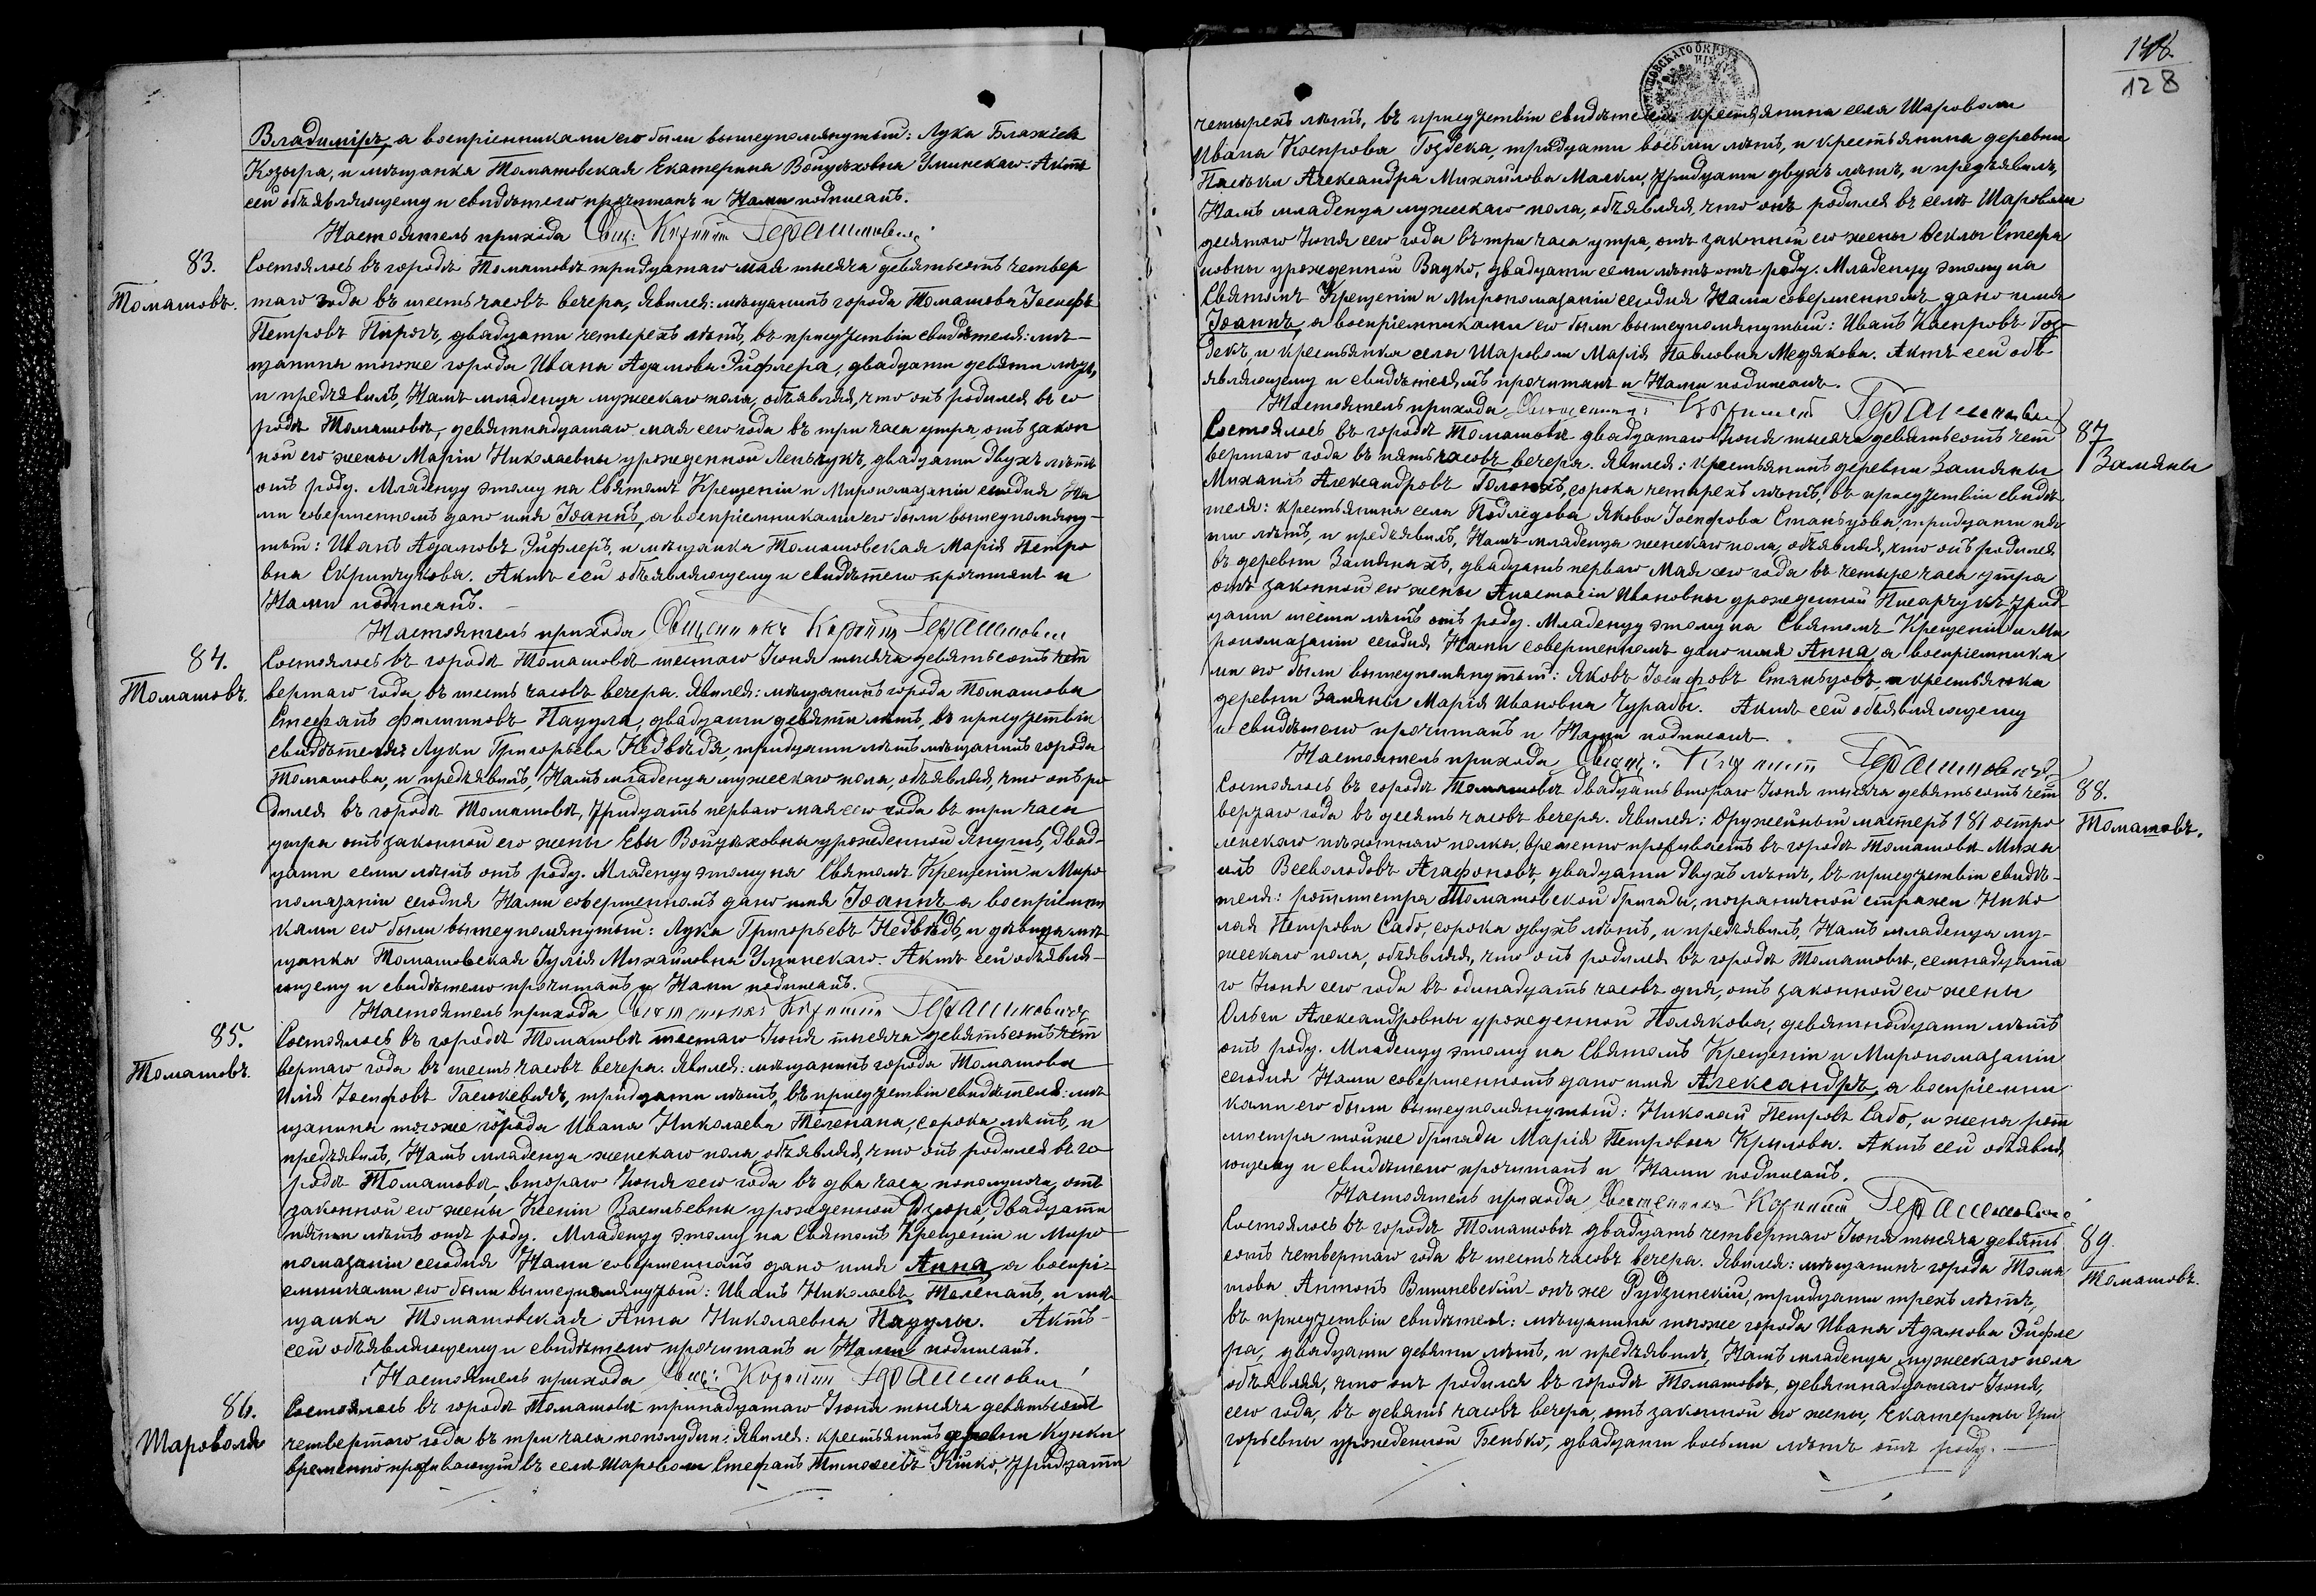 Владиміръ, а воспріемниками его были вышеупомянутый: Лука Блажіевъ
Козыра, и мѣщанка Томашовская Екатерина Войцѣховна Улинскаго. Актъ
сей объявляющему и свидѣтелю прочитанъ и Нами подписанъ.
Настоятель прихода Свящ: Корнилій Герашимовичъ
83.
Томашовъ.
Состоялось въ городѣ Томашовѣ тридцатаго мая тысяча девятьсотъ четвер
таго года въ шесть часовъ вечера, Явился: мѣщанинъ города Томашова Іосифъ
Петровъ Пирогъ, двадцати четырехъ лѣтъ, въ присутствіи свидѣтеля: мѣ-
щанина тогоже города Ивана Адамова Эйфлера, двадцати девяти лѣтъ,
и предъявилъ, Намъ младенца мужескаго пола, объявляя, что онъ родился въ го
родѣ Томашовѣ, девятнадцатаго мая сего года въ три часа утра, отъ закон
ной его жены Маріи Николаевны урожденной Леньчукъ, двадцати двухъ лѣтъ
отъ роду. Младенцу этому на Святомъ Крещеніи и Миропомазаніи сегодня На
ми совершенномъ дано имя Іоаннъ, а воспріемниками его были вышеупомяну-
тый: Иванъ Адамовъ Эйфлеръ, и мѣщанка Томашовская Марія Петро
вна Скрипчукова. Актъ сей объявляющему и свидѣтелю прочитанъ и
Нами подписанъ.
Настоятель прихода Священникъ Корнилій Герашимовичъ
84.
Томашовъ.
Состоялось въ городѣ Томашовѣ шестаго Іюня тысяча девятьсотъ чет
вертаго года въ шесть часовъ вечера. Явился: мѣщанинъ города Томашова
Стефанъ Филиповъ Пацула, двадцати девяти лѣтъ, въ присутствіи
свидѣтеля: Луки Григорьева Недзвѣдя, тридцати лѣтъ мѣщанинъ города
Томашова, и предъявилъ, Намъ младенца мужескаго пола, объявляя, что онъ ро
дился въ городѣ Томашовѣ, тридцать перваго мая сего года въ три часа
утра отъ законной его жены Евы Войцѣховны урожденной Янушъ, двад-
цати семи лѣтъ отъ роду. Младенцу этому на Святомъ Крещеніи и Миро
помазаніи сегодня Нами совершенномъ дано имя Іоаннъ а воспріемни
ками его были вышеупомянутый: Лука Григорьевъ Недзвѣдь, и дѣвица мѣ
щанка Томашовская Іулія Михайловна Улинскаго. Актъ сей объявля-
ющему и свидѣтелю прочитанъ и Нами подписанъ.
Настоятель прихода Священникъ Корнилій Герашимовичъ
85.
Томашовъ.
Состоялось въ городѣ Томашовѣ шестаго Іюня тысяча девятьсотъ чет
вертаго года въ шесть часовъ вечера. Явился: мѣщанинъ города Томашова
Илія Іосифовъ Гасюкевичъ, тридцати лѣтъ, въ присутствіи свидѣтеля: мѣ
щанина тогоже города Ивана Николаева Телепана, сорока лѣтъ, и
предъявилъ, Намъ младенца женскаго пола, объявляя, что онъ родился въ го
родѣ Томашовѣ, втораго Іюня сего года въ два часа пополуночи, отъ
законной его жены Ксеніи Васильевны урожденной Дзюра, двадцати
пяти лѣтъ отъ роду. Младенцу этому на Святомъ Крещеніи и Миро
помазаніи сегодня Нами совершенномъ дано имя Анна, а воспрі-
емниками его были вышеупомянутый: Иванъ Николаевъ Телепанъ, и мѣ
щанка Томашовская Анна Николаевна Пацулы. Актъ
сей объявляющему и свидѣтелю прочитанъ и Нами подписанъ.
Настоятель прихода Свящ: Корнилій Герашимовичъ
86.
Шароволя
Состоялось въ городѣ Томашовѣ тринадцатаго Іюня тысяча девятьсотъ
четвертаго года въ три часа пополудни: Явился: крестьянинъ деревни Кунки
временно проживающій въ селѣ Шароволи Стефанъ Тимоѳеевъ Кицко, тридцати
148
128
четырехъ лѣтъ, въ присутствіи свидѣтелей: крестьянина села Шароволи
Ивана Каспрова Гоздека, тридцати восьми лѣтъ, и крестьянина деревни
Пасѣки Александра Михайлова Малки, тридцати двухъ лѣтъ, и предъявилъ,
Намъ младенца мужескаго пола, объявляя, что онъ родился въ селѣ Шароволи
десятаго Іюня сего года въ три часа утра, отъ законной его жены Ѳеклы Стефа
новны урожденной Вадко, двадцати семи лѣтъ отъ роду. Младенцу этому на
Святомъ Крещеніи и Миропомазаніи сегодня Нами совершенномъ дано имя
Іоаннъ, а воспріемниками его были вышеупомянутый: Иванъ Каспровъ Гоз-
декъ и крестьянка села Шароволи Марія Павловна Медякова. Актъ сей объ
являющему и свидѣтелямъ прочитанъ и Нами подписанъ.
Настоятель прихода Священникъ Корнилій Герашимовичъ
87
Замяны
Состоялось въ городѣ Томашовѣ двадцатаго Іюня тысяча девятьсотъ чет
вертаго года въ пять часовъ вечера. Явился: крестьянинъ деревни Замяны
Михаилъ Александровъ сорока четырехъ лѣтъ, въ присутствіи свидѣ
теля: крестьянина села Подледова Якова Іосифова Станьцова, тридцати пя
ти лѣтъ, и предъявилъ, Намъ младенца женскаго пола, объявляя, что онъ родился
въ деревни Замянахъ, двадцать перваго Мая сего года въ четыре часа утра
отъ законной его жены Анастасіи Ивановны урожденной Писарчукъ, трид-
цати шести лѣтъ отъ роду. Младенцу этому на Святомъ Крещеніи и Ми
ропомазаніи сегодня Нами совершенномъ дано имя Анна, а воспріемника
ми его были вышеупомянутый: Яковъ Іосифовъ Станьцовъ, и крестьянка
деревни Замяны Марія Ивановна Чурабы. Актъ сей объявляющему
и свидѣтелю прочитанъ и Нами подписанъ.
Настоятель прихода Свящ: Корнилій Герашимовичъ
88.
Томашовъ.
Состоялось въ городѣ Томашовѣ двадцать втораго Іюня тысяча девятьсотъ чет
вертаго года въ десять часовъ вечера. Явился: Оружейный мастеръ 181 остро
ленскаго пѣхотнаго полка, временно проживаетъ въ городѣ Томашовѣ Миха
илъ Всеволодовъ Агафоновъ, двадцати двухъ лѣтъ, въ присутствіи свидѣ-
теля: ротмистра Томашовской бригады, пограничной стражи Нико
лая Петрова Сабо, сорока двухъ лѣтъ, и предъявилъ, Намъ младенца му-
жескаго пола, объявляя, что онъ родился въ городѣ Томашовѣ, семнадцата
го Іюня сего года въ одинадцать часовъ дня, отъ законной его жены
Ольги Александровны урожденной Полякова, девятнадцати лѣтъ
отъ роду. Младенцу этому на Святомъ Крещеніи и Миропомазаніи
сегодня Нами совершенномъ дано имя Александръ, а воспріемни
ками его были вышеупомянутый: Николай Петровъ Сабо, и жена рот
мистра тойже бригады Марія Петровна Крылова. Актъ сей объявля
ющему и свидѣтелю прочитанъ и Нами подписанъ.
Настоятель прихода Священникъ Корнилій Герашимовичъ
89.
Томашовъ.
Состоялось въ городѣ Томашовѣ двадцать четвертаго Іюня тысяча девять
сотъ четвертаго года въ шесть часовъ вечера. Явился: мѣщанинъ города Тома
шова Антонъ Вишневскій онъ же Рудзинскій, тридцати трехъ лѣтъ,
въ присутствіи свидѣтеля: мѣщанина тогоже города Ивана Адамова Эйфле
ра, двадцати девяти лѣтъ, и предъявилъ, Намъ младенца мужескаго пола
объявляя, что онъ родился въ городѣ Томашовѣ, девятнадцатаго Іюня,
сего года, въ девять часовъ вечера, отъ законной его жены, Екатерины Гри
горьевны урожденной Бенько, двадцати восьми лѣтъ отъ роду.